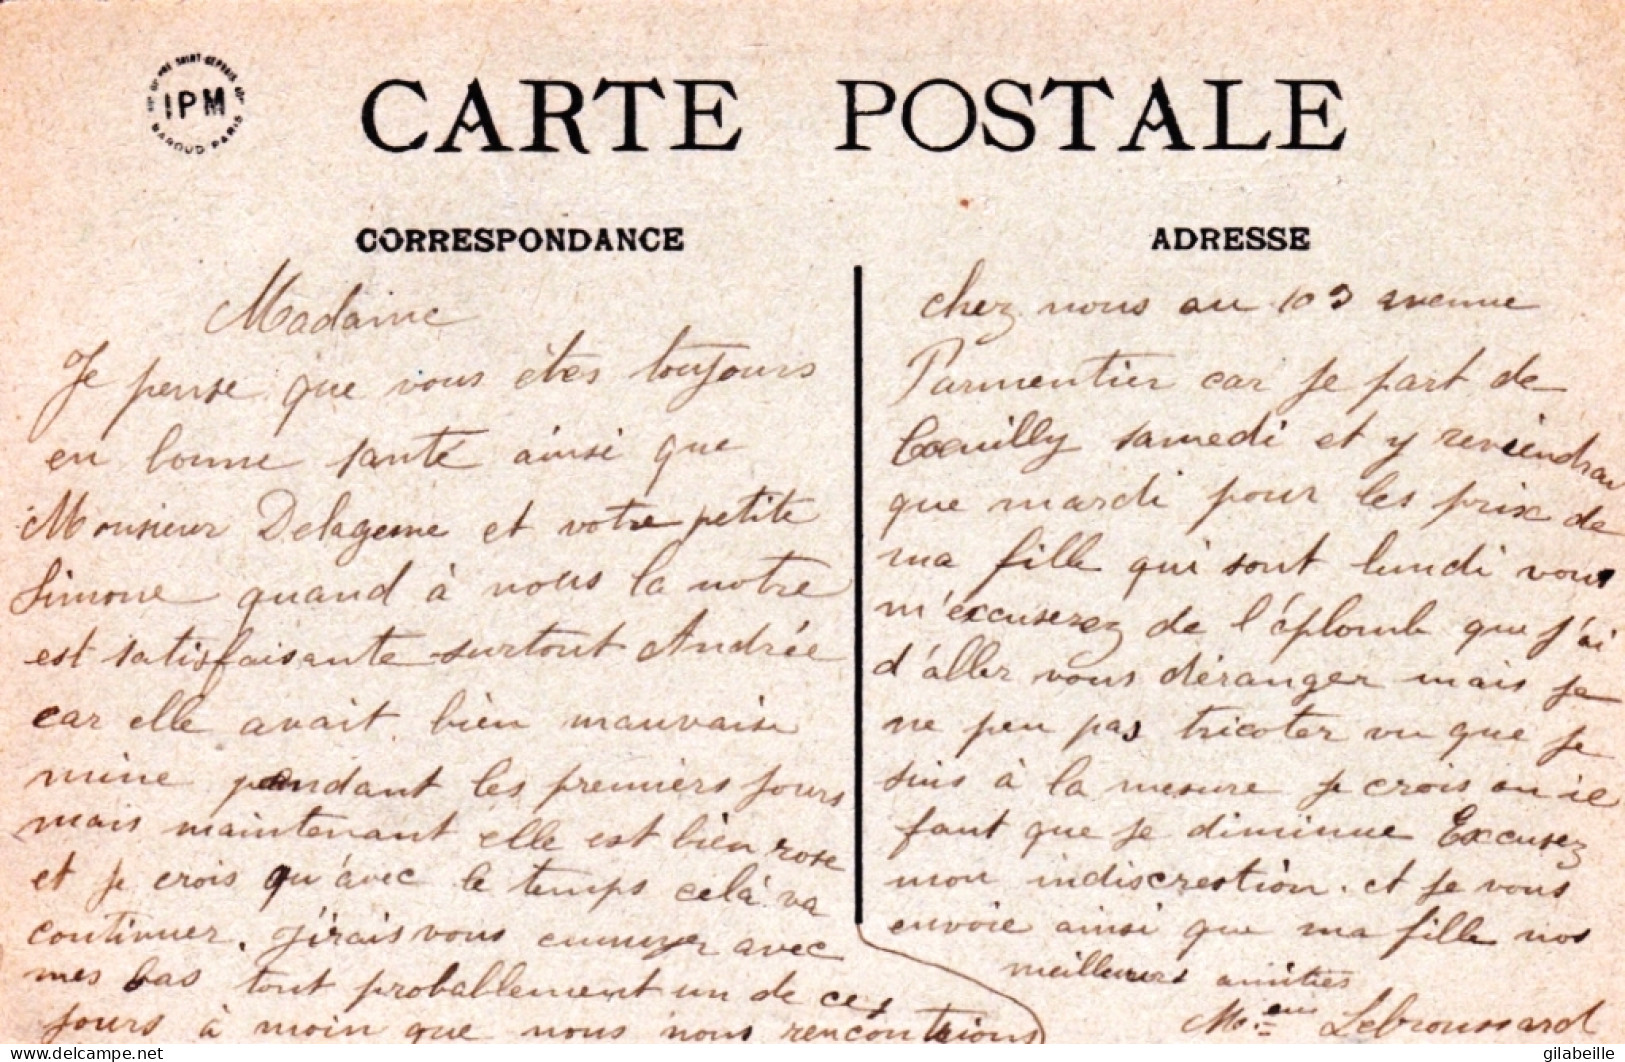 IPM
CARTE POSTALE
CORRESPONDANCE
Madame
Je pense que vous êtes toujours
en bonne santé ainsi que
Monsieur Delageme et votre petite
Simone quand à nous la notre
est satisfaisante surtout Andrée
car elle avait bien mauvaise
mine pendant les premiers jours
mais maintenant elle est bien rose
et je crois qu'avec le temps celà va
continuer. j'irais vous ennuyer avec
mes bas tout probablement un de ces
jours à moin que nous nous rencontrions
ADRESSE
chez nous au 103 avenue
Parmentier car je part de
samedi et y reviendrai
que mardi pour les prix de
ma fille qui sont lundi vous
m'excuserez de l'áplomb que j'ai
d'aller vous déranger mais je
ne peu pas tricoter vu que je
suis à la mesure je crois ou il
faut que je diminue Excusez
mon indiscrestion. et je vous
envoie ainsi que ma fille nos
meilleurs amitiés
Me Lebroussard
delcampe.net
gilabeille